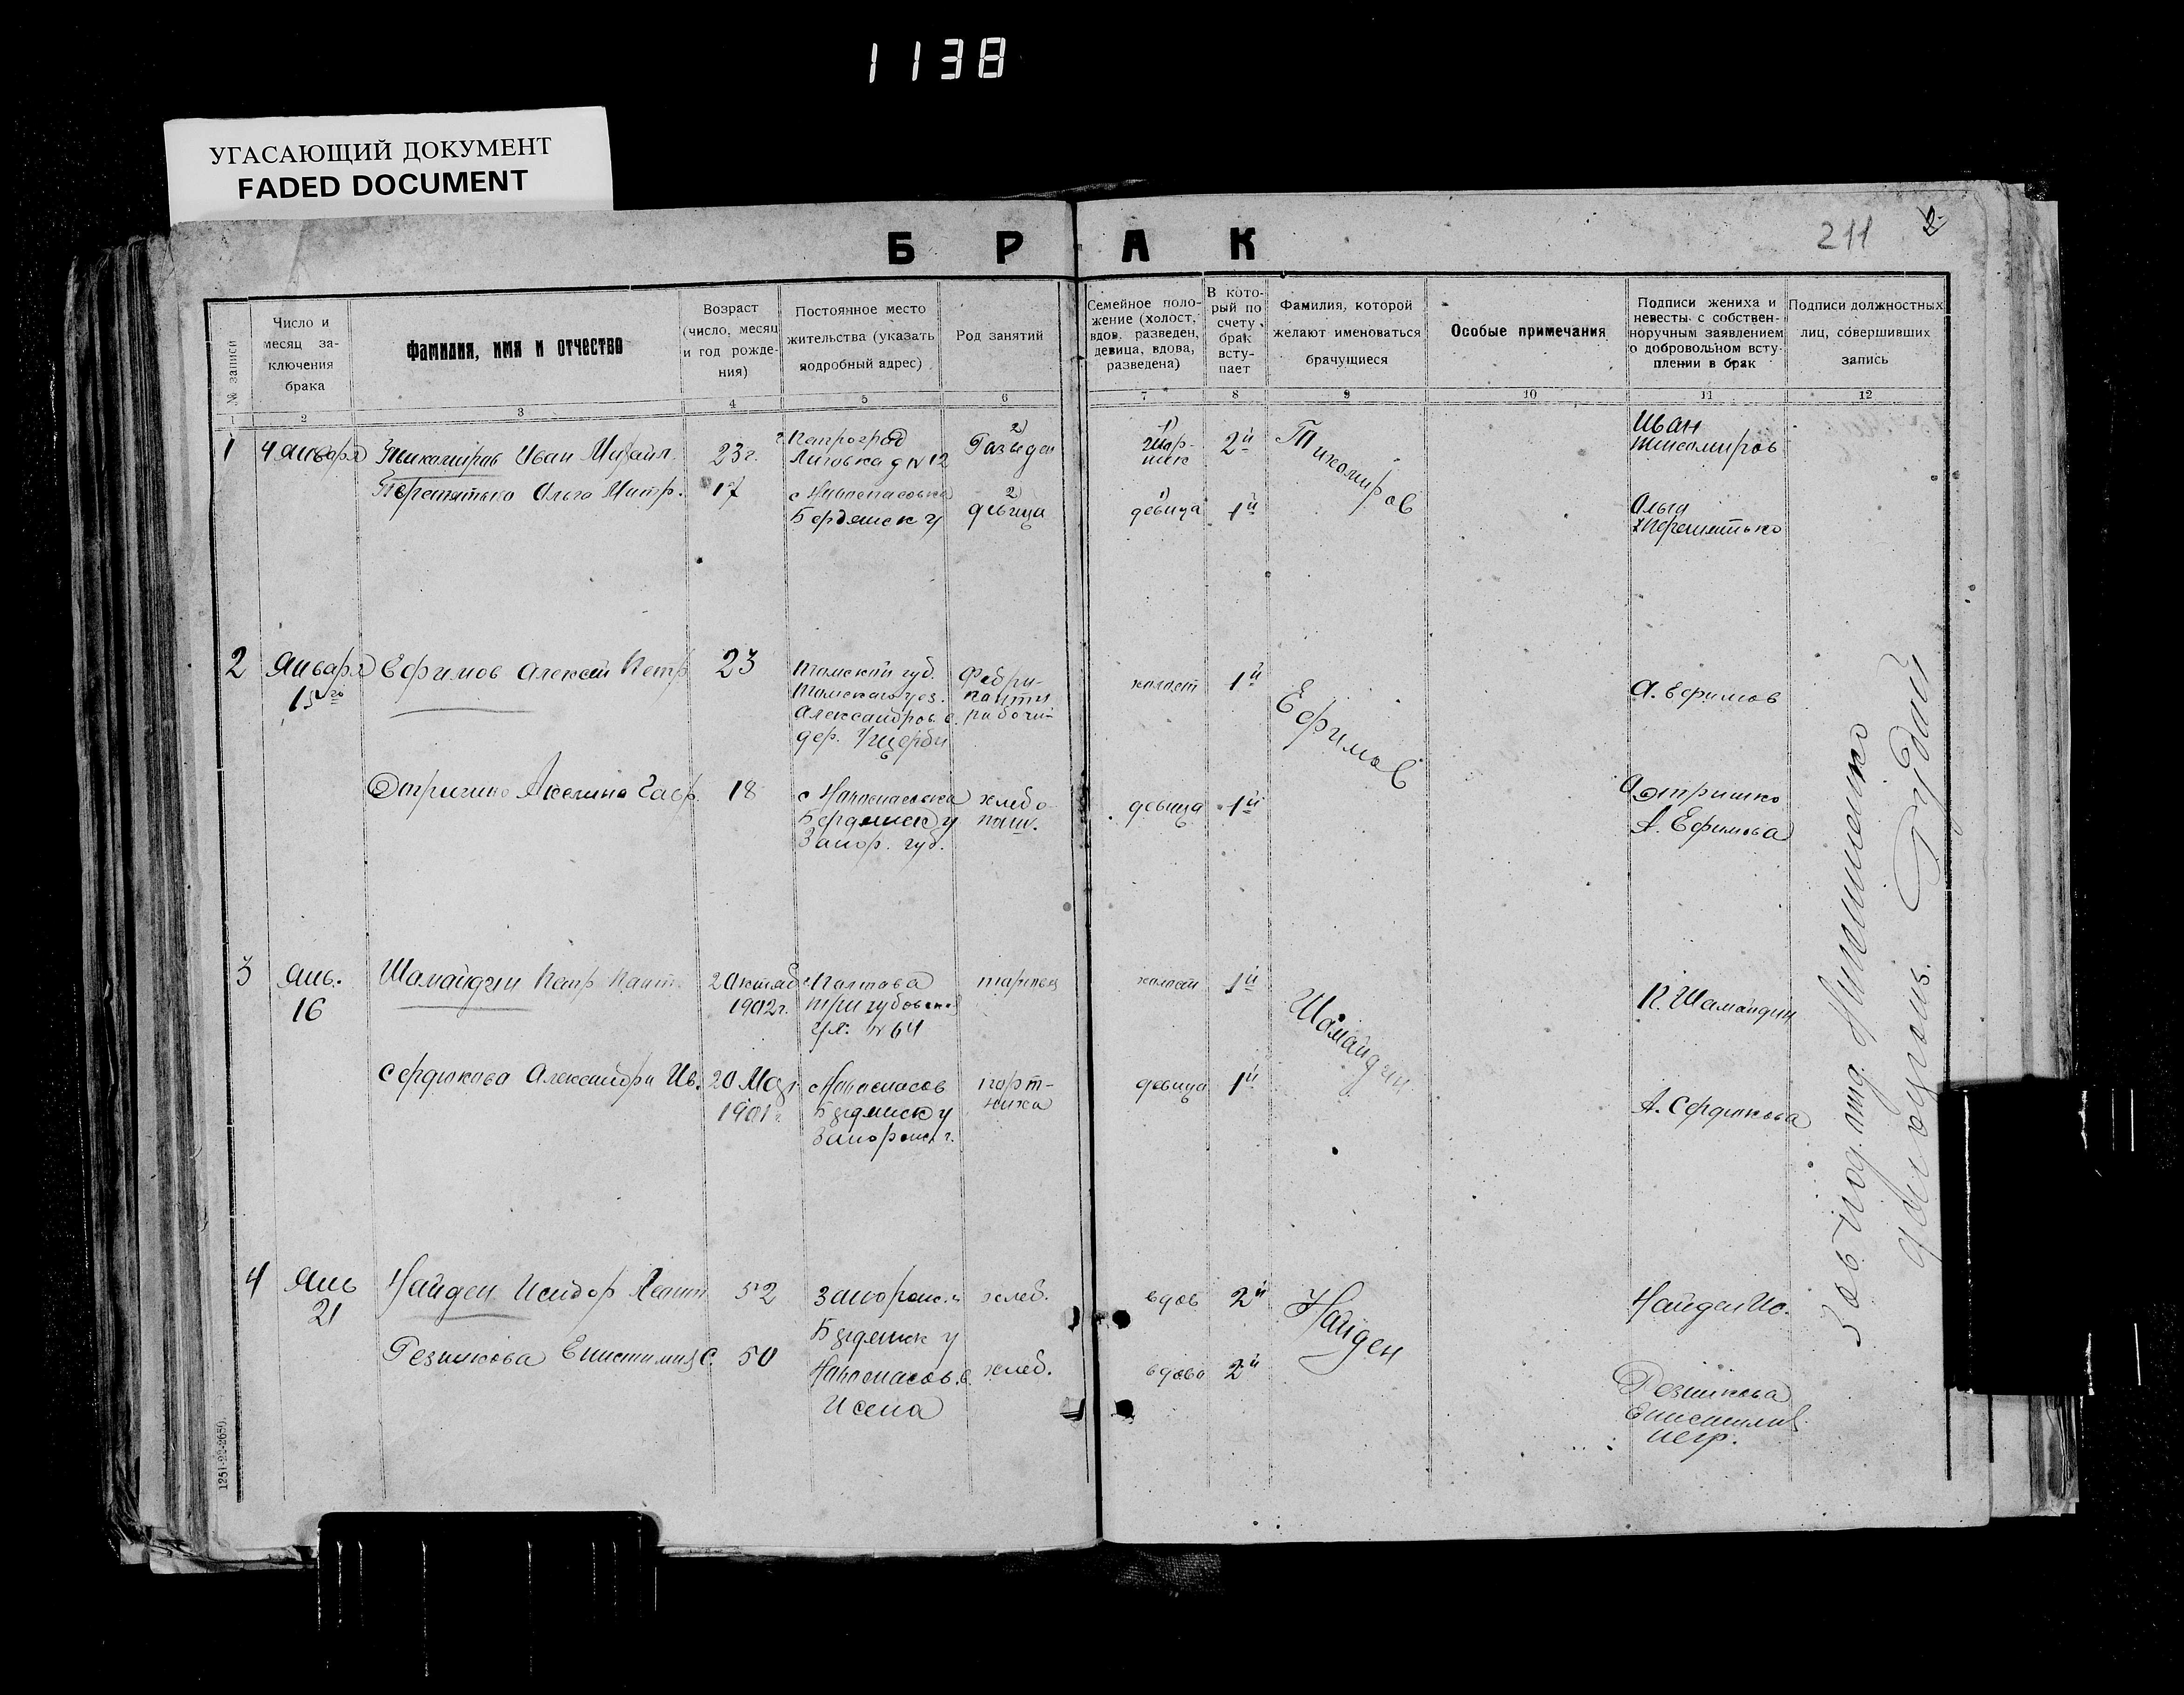 1138
УГАСАЮЩИЙ ДОКУМЕНТ
FADED DOCUMENT
БРАК
211
№ записи
Число и месяц за-
ключения
брака
Фамилия, имя и отчество
Возраст
(число, месяц
и год рожде-
ния)
Постоянное место
жительства (указать
подробный адрес)
Род занятий
Семейное поло-
жение (холост,
вдов, разведен,
девица, вдова,
разведена)
В кото-
рый по
счету
брак
всту-
пает
Фамилия, которой
желают именоваться
брачущиеся
Особые примечания
Подписи жениха и
невесты с собствен-
норучным заявлением
о добровольном всту-
плении в брак
Подписи должностных
лиц, совершивших
запись
1 2 3 4 5 6 7 8 9 10 11 12
1
4 января
Тихомиров Иван Михайл.
23 г.
г. Петроград
Лиговка д № 12
2) Разведен
1)
2й
Тихомиров
Иван
Тихомиров
Перетятько Ольга Митр.
17
с Новоспасовка
Бердянск у
2) девица
1) девица
1й
Ольга
Перетятько
2
Января
15го
Ефимов Алексей Петр
23
Томской губ.
Томского уез.
Александров. в.
дер.
рабочий
холост
1й
Ефимов
А. Ефимов
18
с Новоспасовка
Бердянск у
Запор. губ.
хлебо
паш.
девица
1й
А. Ефимова
3
Янв.
16
Шамайдин Петр
2 Октяб
1902 г.
г. Полтава
ул. № 64
холост
1й
Шамайдин
П. Шамайдин
Сердюкова Александра Ив.
20 Мая
1901 г.
с Новоспасов
Бердянск у
Запорож. г.
девица
1й
А. Сердюкова
4
Янв
21
Найден Исидор
52
Запорож.
хлеб.
вдов
2й
Найден
Найден Ис.
Резникова Епистимия С.
50
Бердянск у
Новоспасов. в.
хлеб.
вдова
2й
Резникова
Епистимия
Зав. под. отд.
делопроиз.
1251-22-2650.